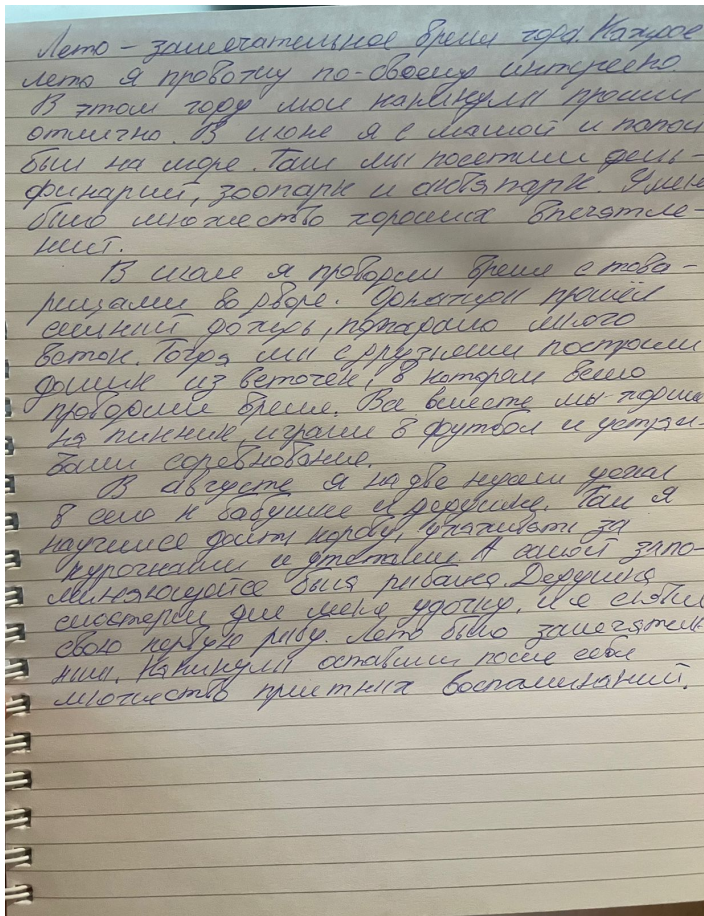 Лето – замечательное время года. Каждое
лето я провожу по-своему интересно.
В этом году мои каникулы прошли
отлично. В июне я с мамой и папой
был на море. Там мы посетили дель-
финарий, зоопарк и аквапарк. У меня
было множество хороших впечатле-
ний.
В июле я проводил время с това-
рищами во дворе. Однажды прошёл
сильный дождь, попадало много
веток. Тогда мы с друзьями построили
домик из веточек, в котором весело
проводили время. Все вместе мы ходили
на пикник, играли в футбол и устраи-
вали соревнование.
В августе я на две недели уехал
в село к бабушке и дедушке. Там я
научился доить корову, ухаживать за
курочками и утятами. А самой запо-
минающейся была рыбалка. Дедушка
смастерил для меня удочку, и я словил
свою первую рыбу. Лето было замечатель-
ным. Каникулы оставили после себя
множество приятных воспоминаний.